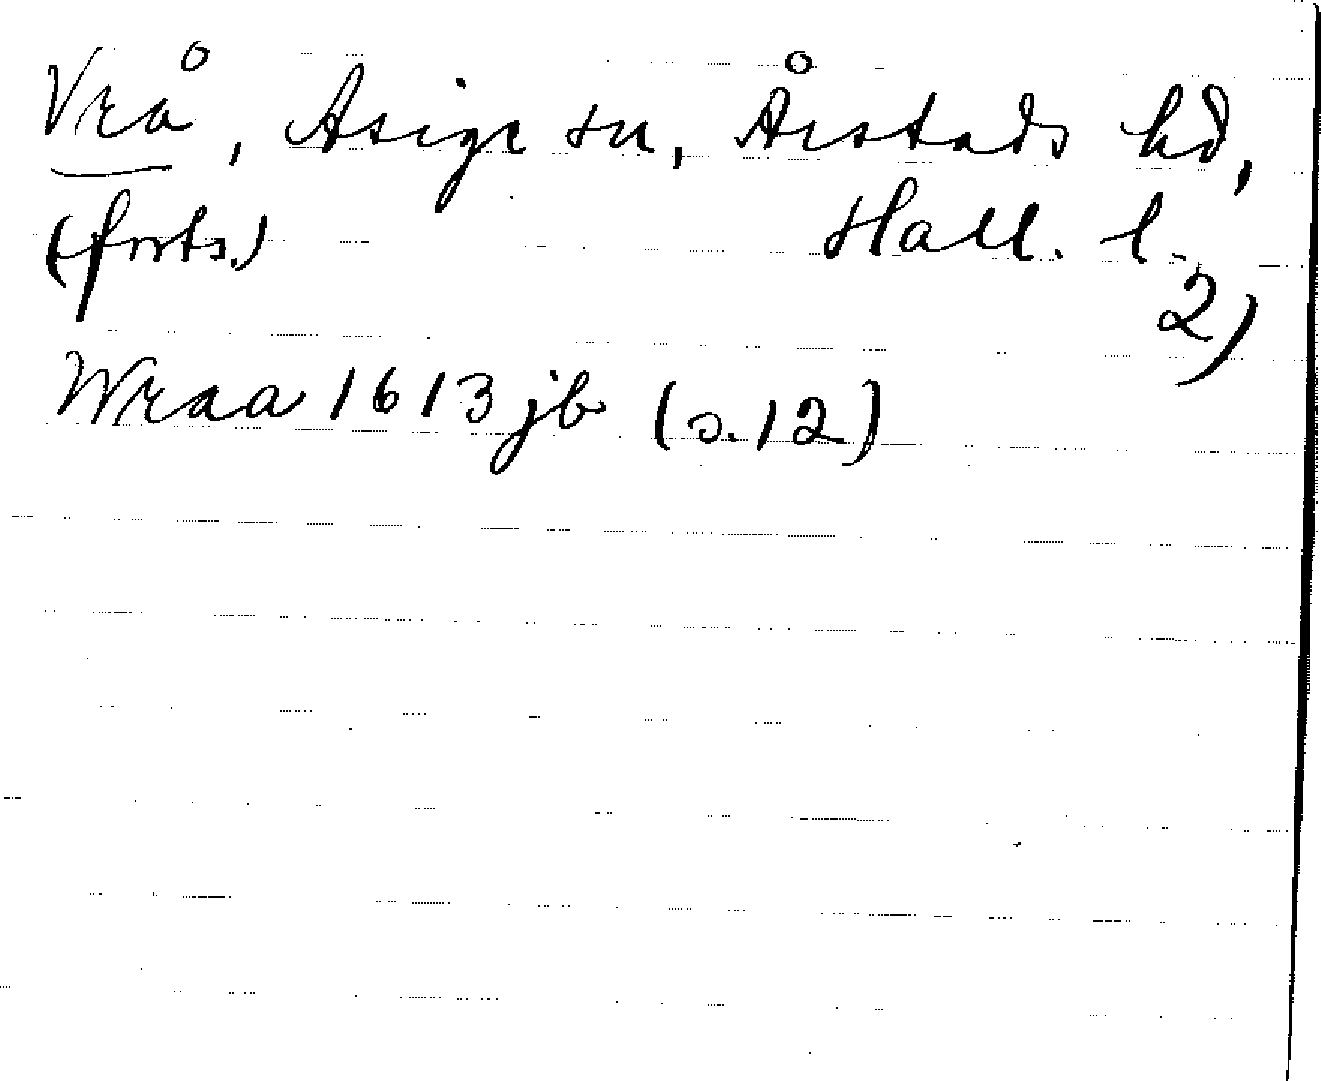 Vrå, Asige sn, Årstads hd,
(forts.) Hall. l.
2)
Wraa 1613 jb (s. 12)